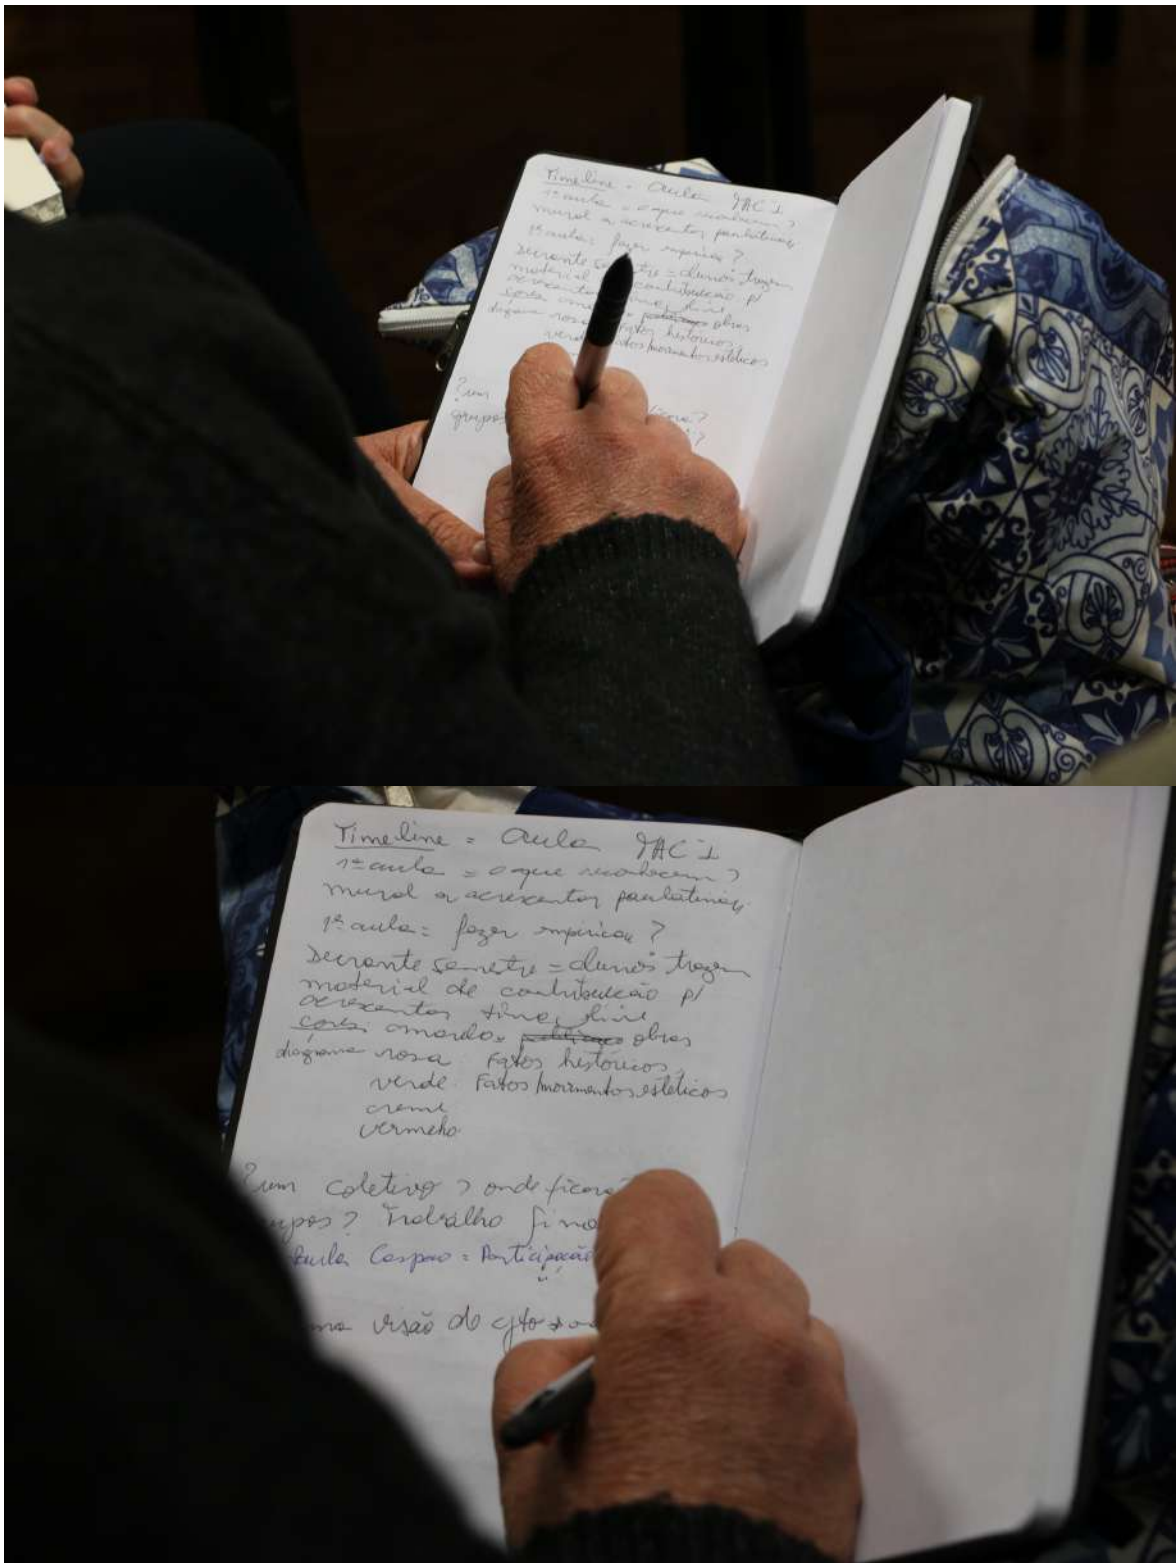 Timeline = Aula
1ª aula = o que
mural a acrescentar
1ª aula: fazer
Durante semestre = alunos trazem
material contribuição p/
acrescentar
cores obras
diagrama rosa Fatos históricos,
verde Fatos/movimentos estéticos
?um
grupos
Timeline = Aula JAC I
1ª aula = o que reconhecem?
mural a acrescentar paulatinam.
1ª aula = fazer empírico ?
Durante semestre = alunos trazem
material de contribuição p/
acrescentar time line
cores amarelo= obras
diagrama rosa Fatos históricos,
verde. Fatos/movimentos estéticos
creme
vermelho
?um coletivo ? onde ficará
grupos? Trabalho fina
Paula Caspão = Participação
visão do cjto